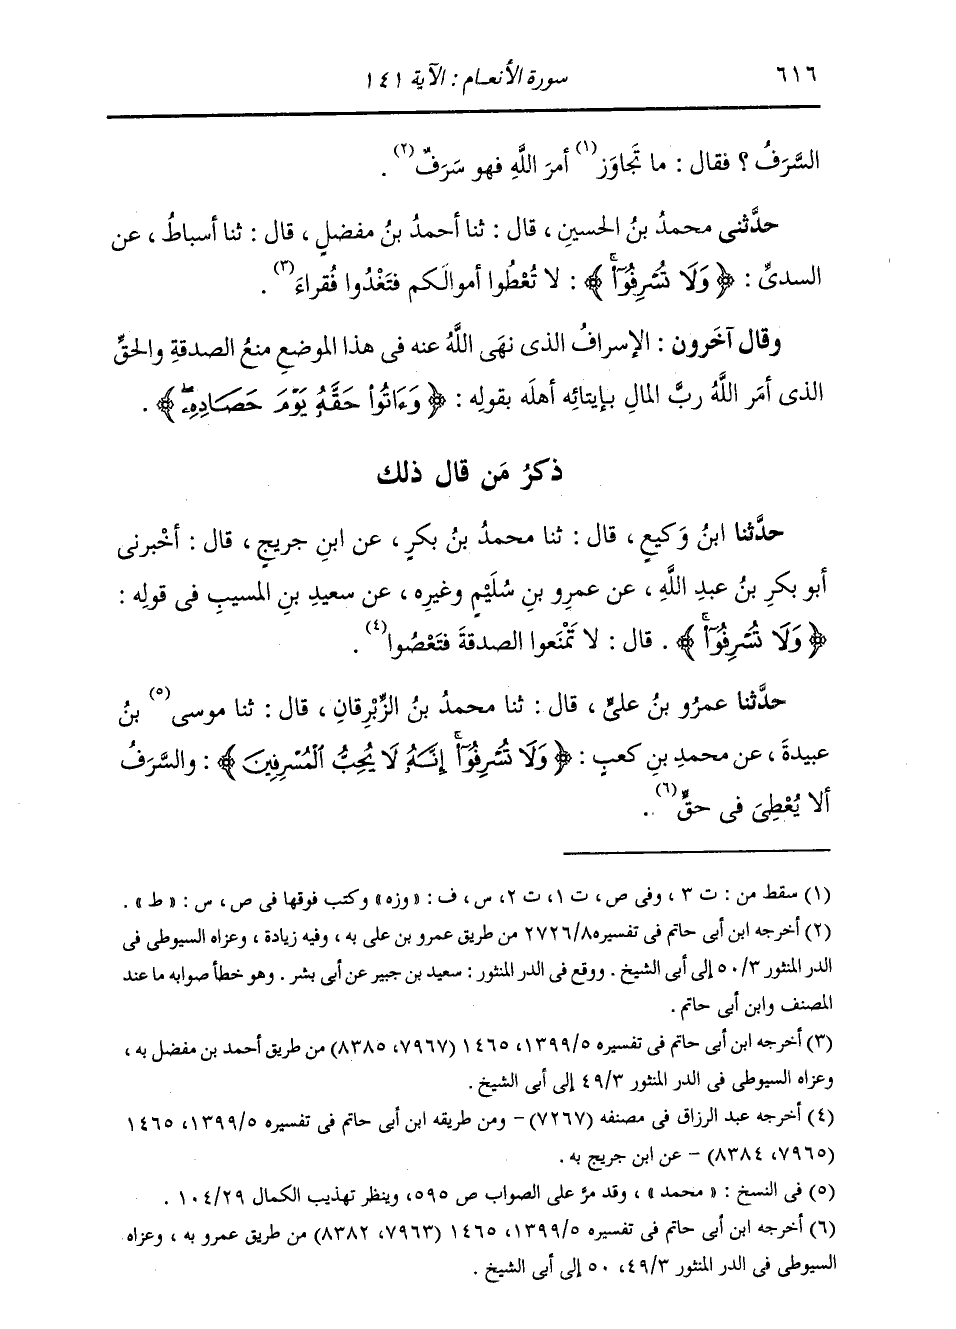 ٦١٦ سورة الأنعام : الآية ١٤١
السَّرَفُ ؟ فقال : ما تَجَاوَز(١) أمرَ اللَّهِ فهو سَرَفٌ(٢) .
حدَّثنى محمدُ بنُ الحسينِ ، قال : ثنا أحمدُ بنُ مفضلٍ ، قال : ثنا أسباطُ ، عن
السدىِّ : ﴿ وَلَا تُسْرِفُوٓا۟ ﴾ : لا تُعْطُوا أموالَكم فتَغْدُوا فُقراءَ(٣) .
وقال آخَرون : الإسرافُ الذى نهَى اللَّهُ عنه فى هذا الموضعِ منعُ الصدقةِ والحقِّ
الذى أمَر اللَّهُ ربَّ المالِ بإيتائِه أهلَه بقولِه : ﴿ وَءَاتُوا۟ حَقَّهُۥ يَوْمَ حَصَادِهِۦ ﴾ .
ذكرُ مَن قال ذلك
حدَّثنا ابنُ وَكيعٍ ، قال : ثنا محمدُ بنُ بكرٍ ، عن ابنِ جريجٍ ، قال : أخْبرنى
أبو بكرِ بنُ عبدِ اللَّهِ ، عن عمرِو بنِ سُلَيْمٍ وغيرِه ، عن سعيدِ بنِ المسيبِ فى قولِه :
﴿ وَلَا تُسْرِفُوٓا۟ ﴾ . قال : لا تَمْنَعوا الصدقةَ فتَعْصُوا(٤) .
حدَّثنا عمرُو بنُ علىٍّ ، قال : ثنا محمدُ بنُ الزِّبْرِقانِ ، قال : ثنا موسى(٥) بنُ
عبيدةَ ، عن محمدِ بنِ كعبٍ : ﴿ وَلَا تُسْرِفُوٓا۟ إِنَّهُۥ لَا يُحِبُّ ٱلْمُسْرِفِينَ ﴾ : والسَّرَفُ
ألا يُعْطِىَ فى حقٍّ(٦) .
(١) سقط من : ت ٣ ، وفى ص ، ت ١، ت ٢، س ، ف : « وزه » وكتب فوقها فى ص ، س : « ط » .
(٢) أخرجه ابن أبى حاتم فى تفسيره ٢٧٢٦/٨ من طريق عمرو بن على به ، وفيه زيادة ، وعزاه السيوطى فى
الدر المنثور ٥٠/٣ إلى أبى الشيخ . ووقع فى الدر المنثور : سعيد بن جبير عن أبى بشر . وهو خطأ صوابه ما عند
المصنف وابن أبى حاتم .
(٣) أخرجه ابن أبى حاتم فى تفسيره ١٣٩٩/٥، ١٤٦٥ (٧٩٦٧، ٨٣٨٥) من طريق أحمد بن مفضل به ،
وعزاه السيوطى فى الدر المنثور ٤٩/٣ إلى أبى الشيخ .
(٤) أخرجه عبد الرزاق فى مصنفه (٧٢٦٧) - ومن طريقه ابن أبى حاتم فى تفسيره ١٣٩٩/٥، ١٤٦٥
(٧٩٦٥، ٨٣٨٤) - عن ابن جريج به .
(٥) فى النسخ : « محمد » ، وقد مرَّ على الصواب ص ٥٩٥، وينظر تهذيب الكمال ١٠٤/٢٩ .
(٦) أخرجه ابن أبى حاتم فى تفسيره ١٣٩٩/٥، ١٤٦٥ (٧٩٦٣، ٨٣٨٢) من طريق عمرو به ، وعزاه
السيوطى فى الدر المنثور ٤٩/٣، ٥٠ إلى أبى الشيخ .